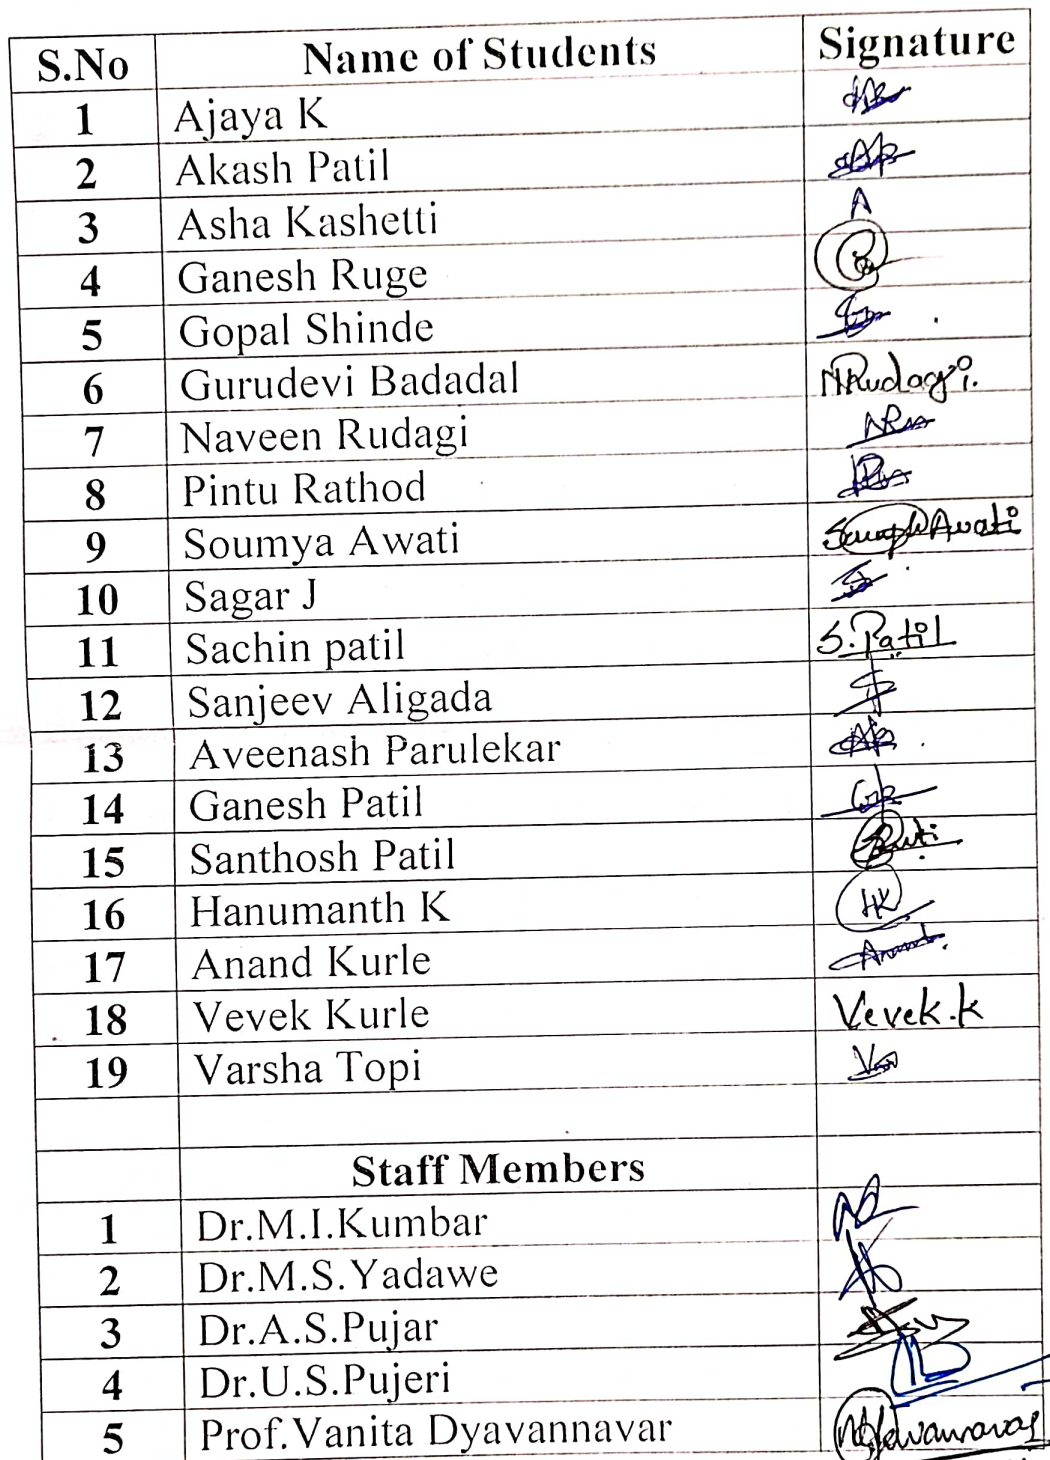 S.No Name of Students Signature
1 Ajaya K
2 Akash Patil
3 Asha Kashetti A
4 Ganesh Ruge
5 Gopal Shinde
6 Gurudevi Badadal NRudagi.
7 Naveen Rudagi
8 Pintu Rathod
9 Soumya Awati Awati
10 Sagar J
11 Sachin patil S.Patil
12 Sanjeev Aligada
13 Aveenash Parulekar
14 Ganesh Patil
15 Santhosh Patil
16 Hanumanth K HK
17 Anand Kurle Anand.
18 Vevek Kurle Vevek.k
19 Varsha Topi
Staff Members
1 Dr.M.I.Kumbar
2 Dr.M.S.Yadawe
3 Dr.A.S.Pujar
4 Dr.U.S.Pujeri
5 Prof.Vanita Dyavannavar